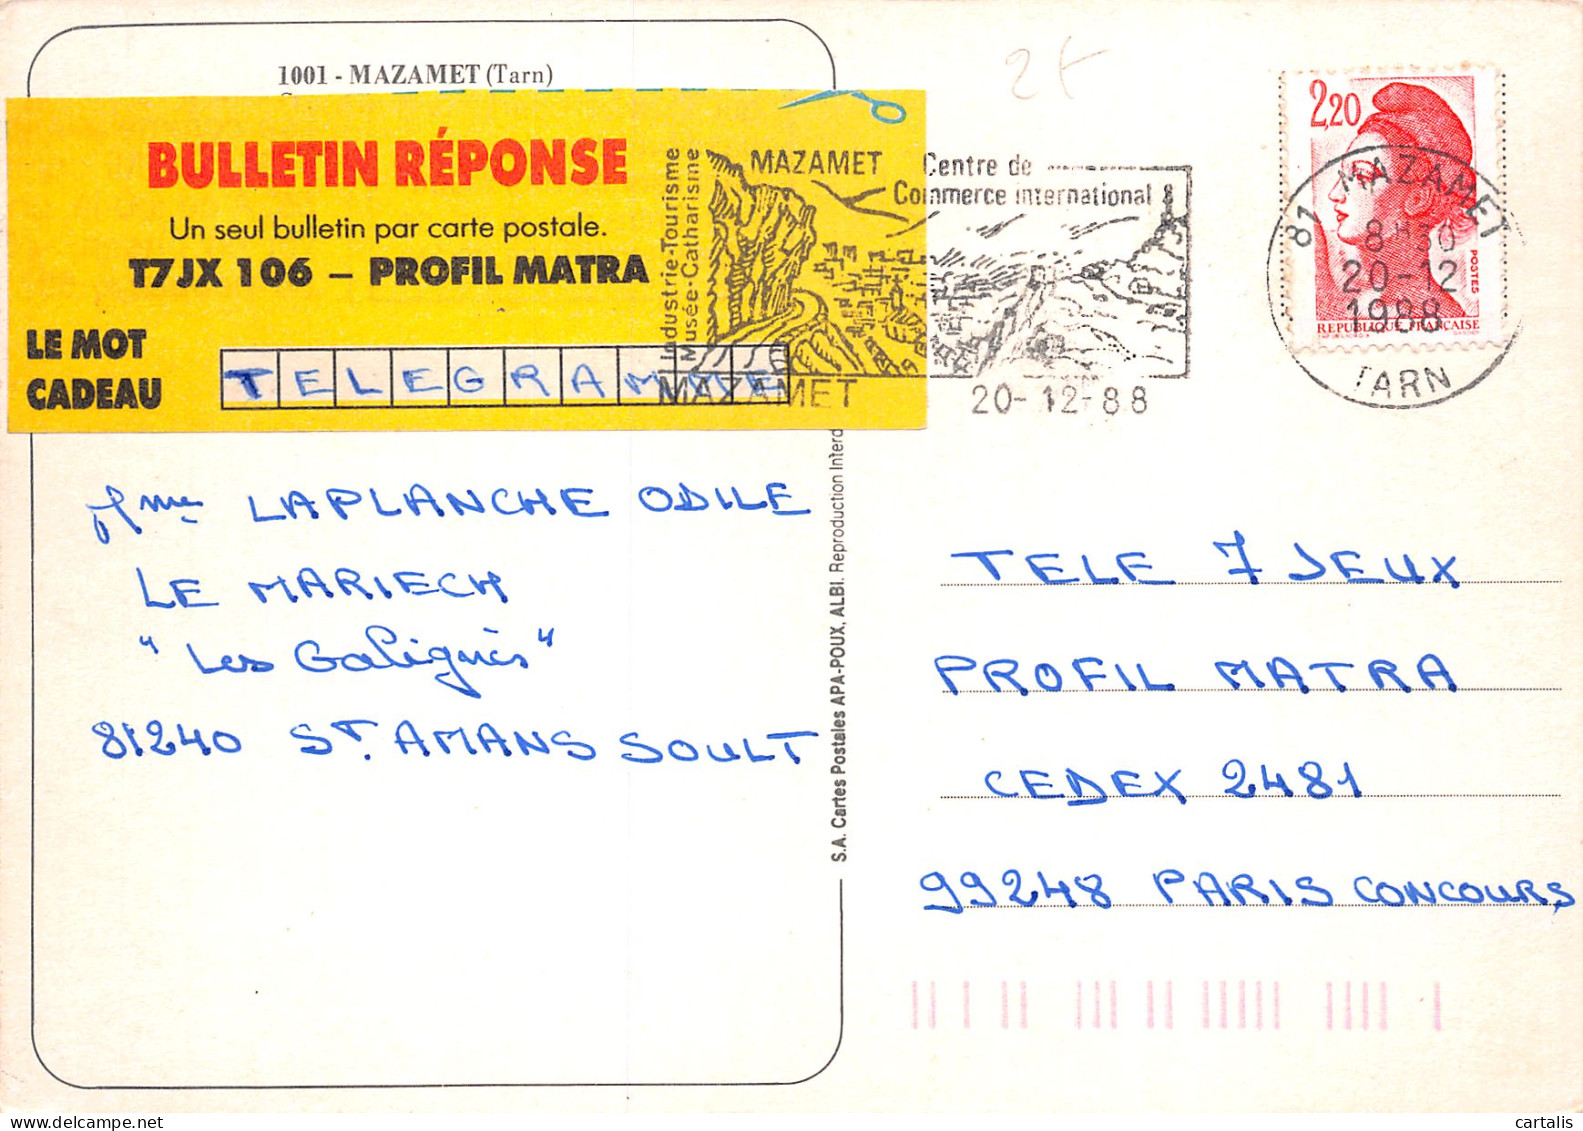 1001 - MAZAMET (Tarn)
BULLETIN RÉPONSE
Un seul bulletin par carte postale.
T7JX 106 – PROFIL MATRA
LE MOT
CADEAU
TELEGRAMME
Industrie-Tourisme
Musée-Catharisme
MAZAMET
MAZAMET
Centre de
Commerce international
20-12-88
2,20
POSTES
REPUBLIQUE FRANÇAISE
81 MAZAMET
8H30
20-12
1988
TARN
2€
Mme LAPLANCHE ODILE
LE MARIECH
"Les Galiguès"
81240 ST. AMANS SOULT
S.A. Cartes Postales APA-POUX, ALBI. Reproduction Interd
TELE 7 JEUX
PROFIL MATRA
CEDEX 2481
99248 PARIS CONCOURS
cartalis